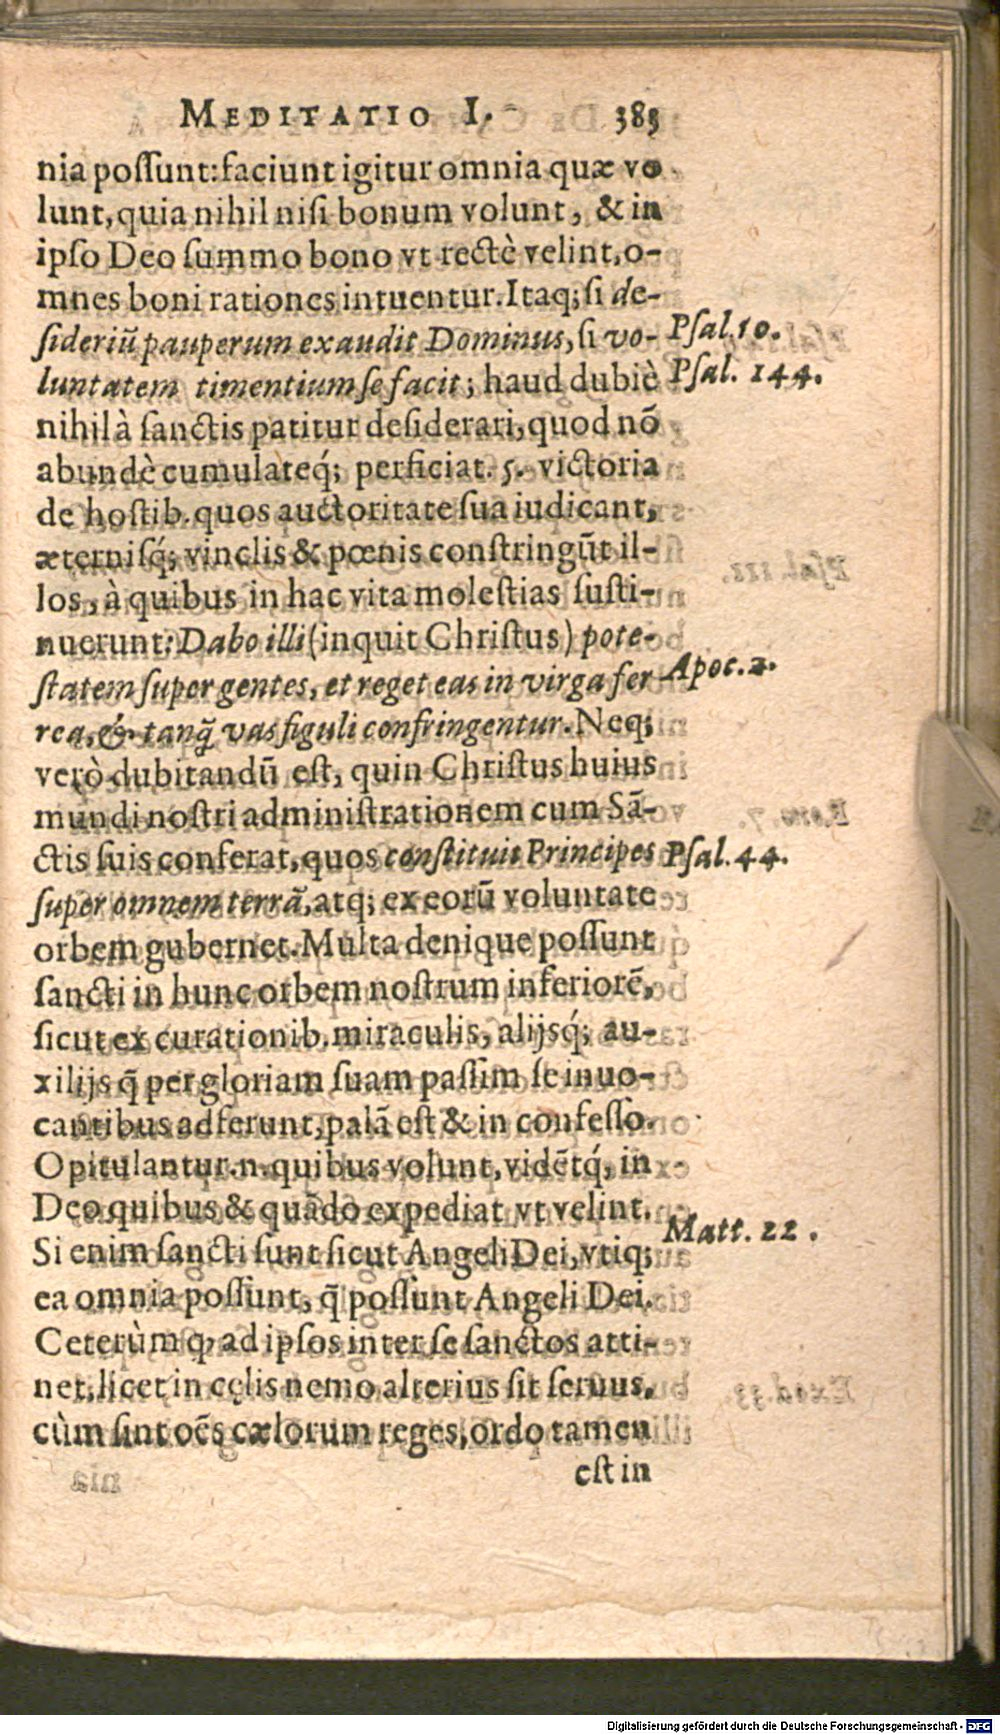 MEDITATIO I. 383
nia possunt: faciunt igitur omnia quæ vo-
lunt, quia nihil nisi bonum volunt, & in
ipso Deo summo bono vt rectè velint, o-
mnes boni rationes intuentur. Itaq; si de-
sideriũ pauperum exaudit Dominus, si vo- Psal. 10.
luntatem timentium se facit; haud dubiè Psal. 144.
nihil à sanctis patitur desiderari, quod nõ
abundè cumulateq́; perficiat. 5. victoria
de hostib. quos auctoritate sua iudicant,
æternisq́; vinclis & pœnis constringũt il-
los, à quibus in hac vita molestias susti-
nuerunt: Dabo illi (inquit Christus) pote-
statem super gentes, et reget eas in virga fer Apoc. 2.
rea, & tanq̃ vas figuli confringentur. Neq;
verò dubitandũ est, quin Christus huius
mundi nostri administrationem cum Sã-
ctis suis conferat, quos constituit Principes Psal. 44.
super omnem terrã, atq; ex eorũ voluntate
orbem gubernet. Multa denique possunt
sancti in hunc orbem nostrum inferiorẽ,
sicut ex curationib. miraculis, alijsq́; au-
xilijs q̃ per gloriam suam passim se inuo-
cantibus adferunt, palã est & in confesso.
Opitulantur .n. quibus volunt, vidẽtq́, in
Deo quibus & quãdo expediat vt velint.
Si enim sancti sunt sicut Angeli Dei, vtiq; Matt. 22.
ea omnia possunt, q̃ possunt Angeli Dei.
Ceterùm q, ad ipsos inter se sanctos atti-
net, licet in cęlis nemo alterius sit seruus,
cùm sint oẽs cælorum reges, ordo tamen
est in
Digitalisierung gefördert durch die Deutsche Forschungsgemeinschaft - DFG